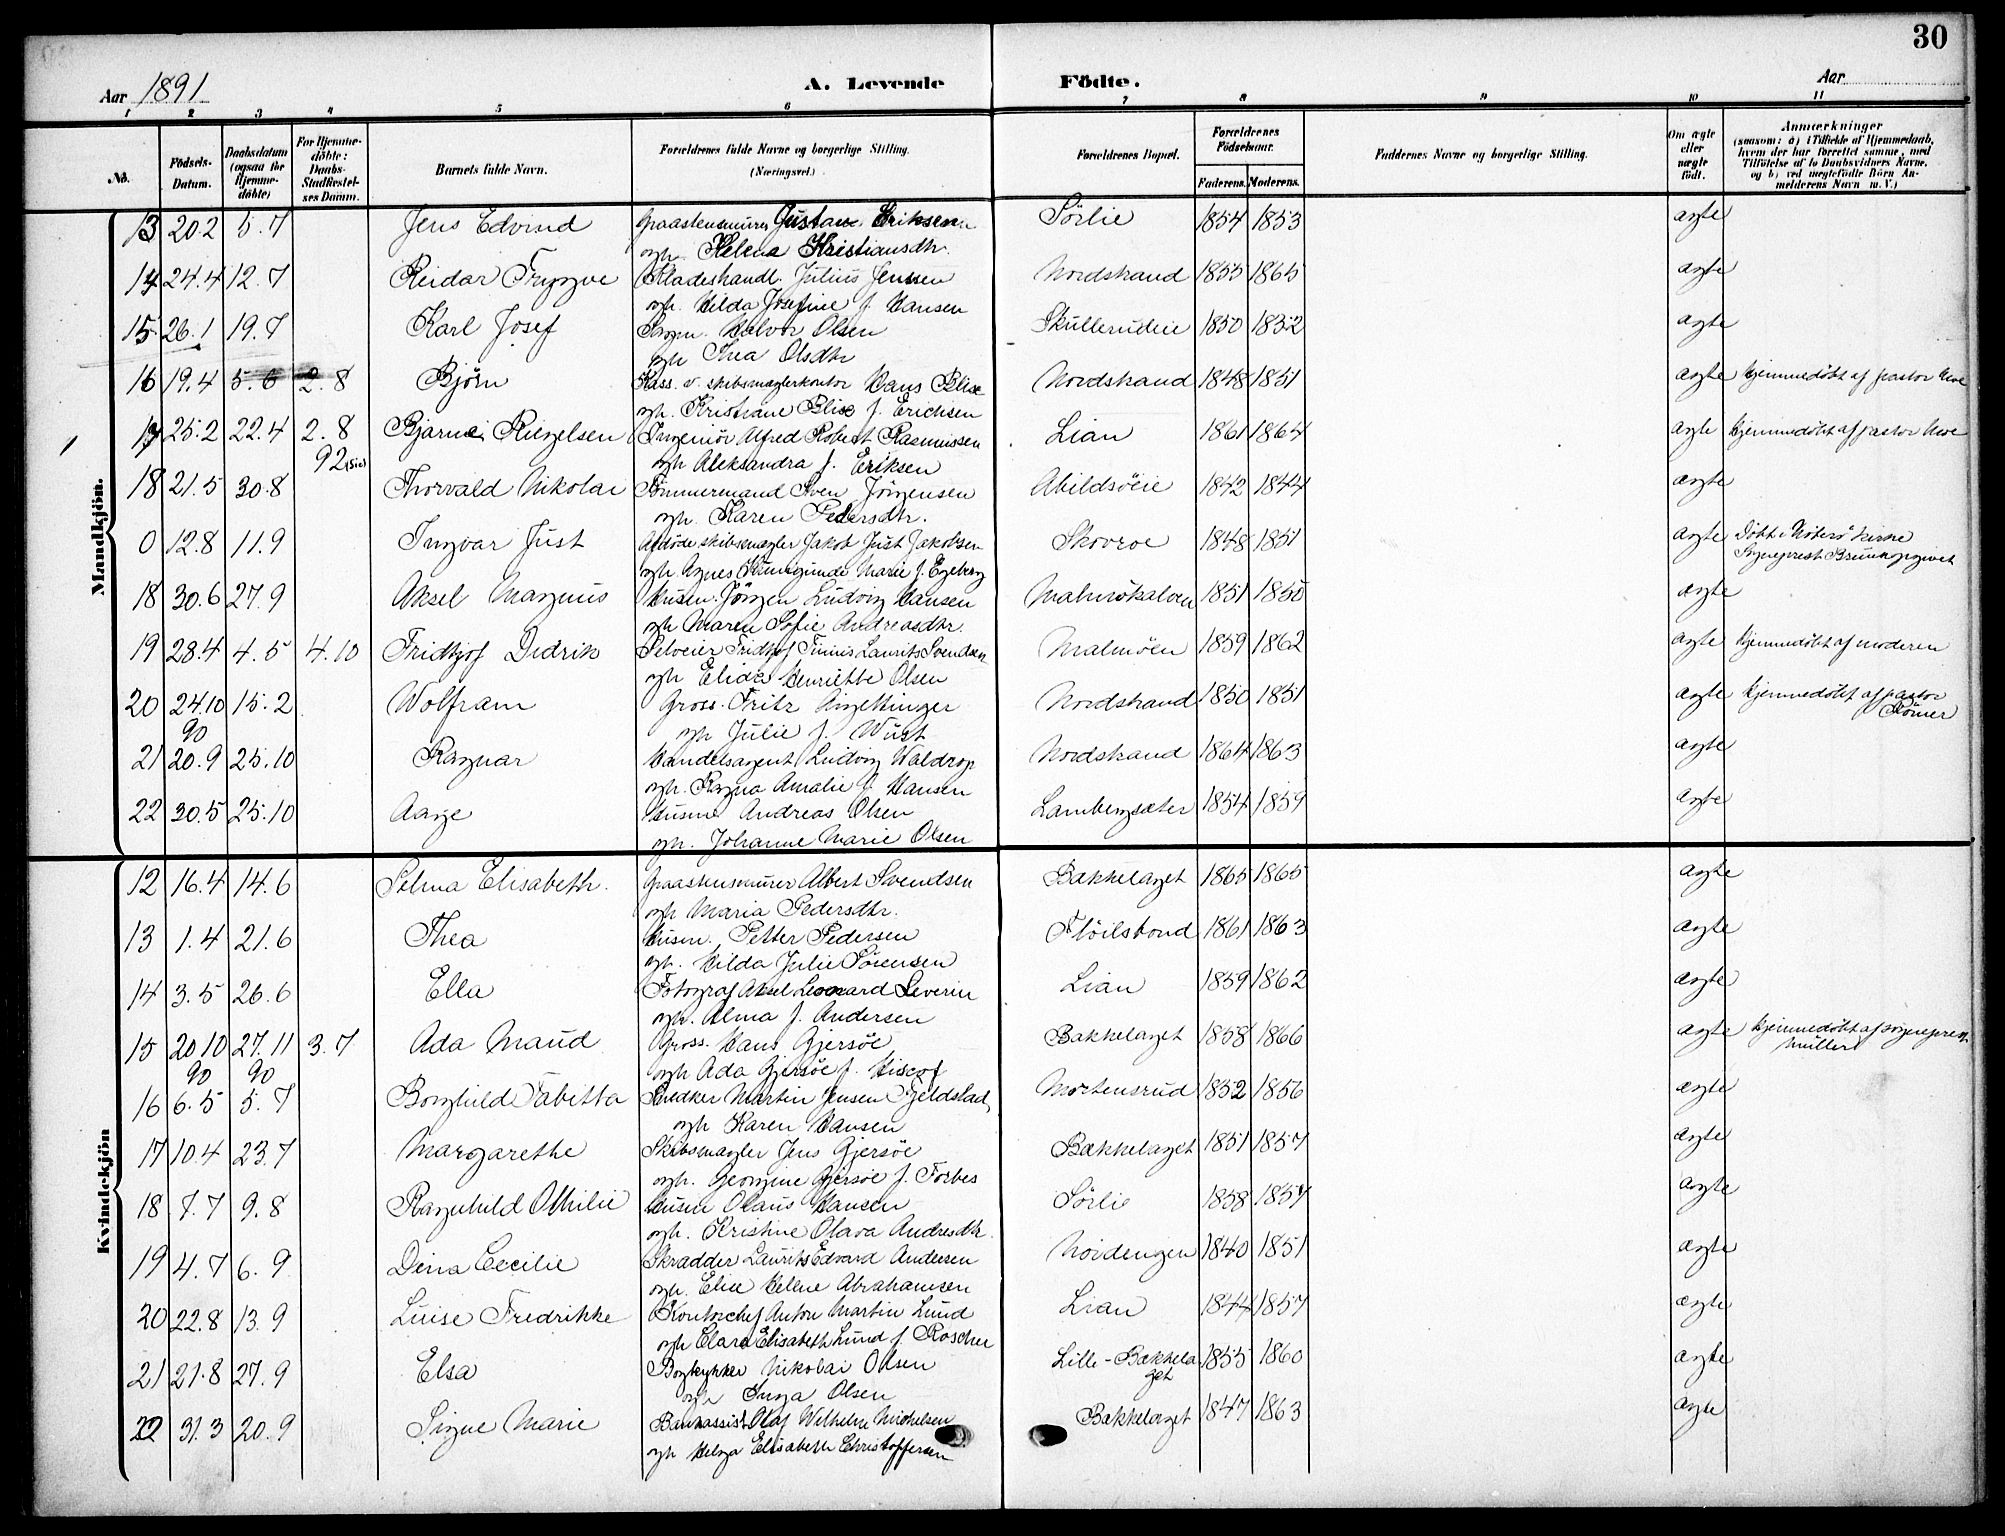 30
Aar 1891
A. Levende Födte.
Aar
1 2 3 4 5 6 7 8 9 10 11
No. Födsels-Datum. Daabsdatum (ogsaa for Hjemmedöbte) For Hjemmedöbte: Daabs-Stadfæstelses Datum. Barnets fulde Navn. Forældrenes fulde Navne og borgerlige Stilling. (Næringsvei.) Forældrenes Bopæl. Forældrenes Födselsaar. Faderens. Moderens. Faddernes Navne og borgerlige Stilling. Om ægte eller uægte födt. Anmærkninger (saasom: a) i Tilfælde af Hjemmedaab, hvem der har forrettet samme, med Tilföielse af to Daabsvidners Navne, og b) ved uægtefödte Börn Anmelderens Navn m.V.)
Mandkjön.
13 20.2 5.7 Jens Edvind Graastensmurer Gustav Eriksen Sörlie 1854 1853 ægte
og h. Helena Kristiansdtr.
14 24.4 12.7 Reidar Trygve Kladeshandl. Julius Jenssen Nordstrand 1855 1865 ægte
og h. Hilda Josefine f. Hansen
15 26.1 19.7 Karl Josef Halvor Olsen Skullerudeie 1850 1852 ægte
og h Thea Olsdtr
16 19.4 5.6 2.8 Björn Kass. v. skibsmæglerkontor Hans Blise Nordstrand 1848 1851 ægte Hjemmedöbt af pastor Hwe
og h. Kristiane Blise f. Erichsen
17 25.2 22.4 2.8 Bjarne Ringelsen Ingeniör Alfred Robert Rasmussen Lian 1861 1864 ægte Hjemmedöbt af pastor Hwe
92 (sic) og h Aleksandra f. Eriksen
18 21.5 30.8 Thorvald Nikolai Tömmermand Sven Jörgensen Abildsöeie 1842 1844 ægte
og h. Karen Pedersdtr.
0 12.8 11.9 Ingvar Just Afdöde skibsmægler Jakob Just Jakobsen Skovroe 1848 1851 ægte Döbt i Kirke
og h. Agnes Kunigunde Marie f. Egeberg Sogneprest Bruun opgivet
18 30.6 27.9 Aksel Magnus Husm. Jörgen Ludvig Hansen Malmökalven 1851 1850 ægte
og h Maren Sofie Andreasdtr.
19 28.4 4.5 4.10 Fridtjof Didrik Selveier Fridtjof Tinius Laurits Svendsen Malmöen 1859 1862 ægte Hjemmedöbt af moderen
og h Elida Henriette Olsen
20 24.10 15.2 Wolfram Gross. Fritz Nordstrand 1850 1851 ægte Hjemmedöbt af pastor
90 og h Julie f. Wüst Römer
21 20.9 25.10 Ragnar Handelsagent Ludvig Waldrop Nordstrand 1864 1863 ægte
og h. Ragna Amalie f. Hansen
22 30.5 25.10 Aage Husm Andreas Olsen Lambergsæter 1854 1859 ægte
og h. Johanne Marie Olsen
Kvindekjön
12 16.4 14.6 Selma Elisabeth. Graastensmurer Albert Svendsen Bækkelaget 1865 1865 ægte
og h Maria Pedersdtr.
13 1.4 21.6 Thea Husm. Petter Pedersen Flöisbond 1861 1863 ægte
og h. Hilda Julie Sörensen
14 3.5 26.6 Ella Fotograf Aksel Leonard Severin Lian 1859 1862 ægte
og h. Alma f. Andersen
15 20.10 27.11 3.7 Ada Maud Gross. Hans Gjersöe Bækkelaget 1858 1866 ægte Hjemmedöbt af sogneprest
90 90 og h Ada Gjersöe f. Hiscof Müller
16 6.5 5.7 Borghild Tabitta Snedker Martin Jensen Fjeldstad Mortensrud 1852 1856 ægte
og h Karen Hansen
17 10.4 23.7 Margarethe Skibsmægler Jens Gjersöe Bækkelaget 1851 1857 ægte
og h. Georgine Gjersöe f. Forbes
18 7.7 9.8 Ragnhild Othilie Husm Olaus Hansen Sörlie 1858 1857 ægte
og h. Kristine Olava Andresdtr.
19 4.7 6.9 Dina Cecilie Skrædder Laurits Edvard Andersen 1840 1851 ægte
og h. Elise Helene Abrahamsen
20 22.8 13.9 Luise Fredrikke Kontorchef Anton Martin Lund Lian 1844 1857 ægte
og h Clara Elisabeth Lund f. Roscher
21 21.8 27.9 Elsa Bogtrykker Nikolai Olsen Lille-Bækkelaget 1855 1860 ægte
og h Inga Olsen
22 31.3 20.9 Signe Marie Bankassist. Olaf Wilhelm Michelsen Bækkelaget 1847 1863 ægte
og h Helga Elisabeth Christoffersen